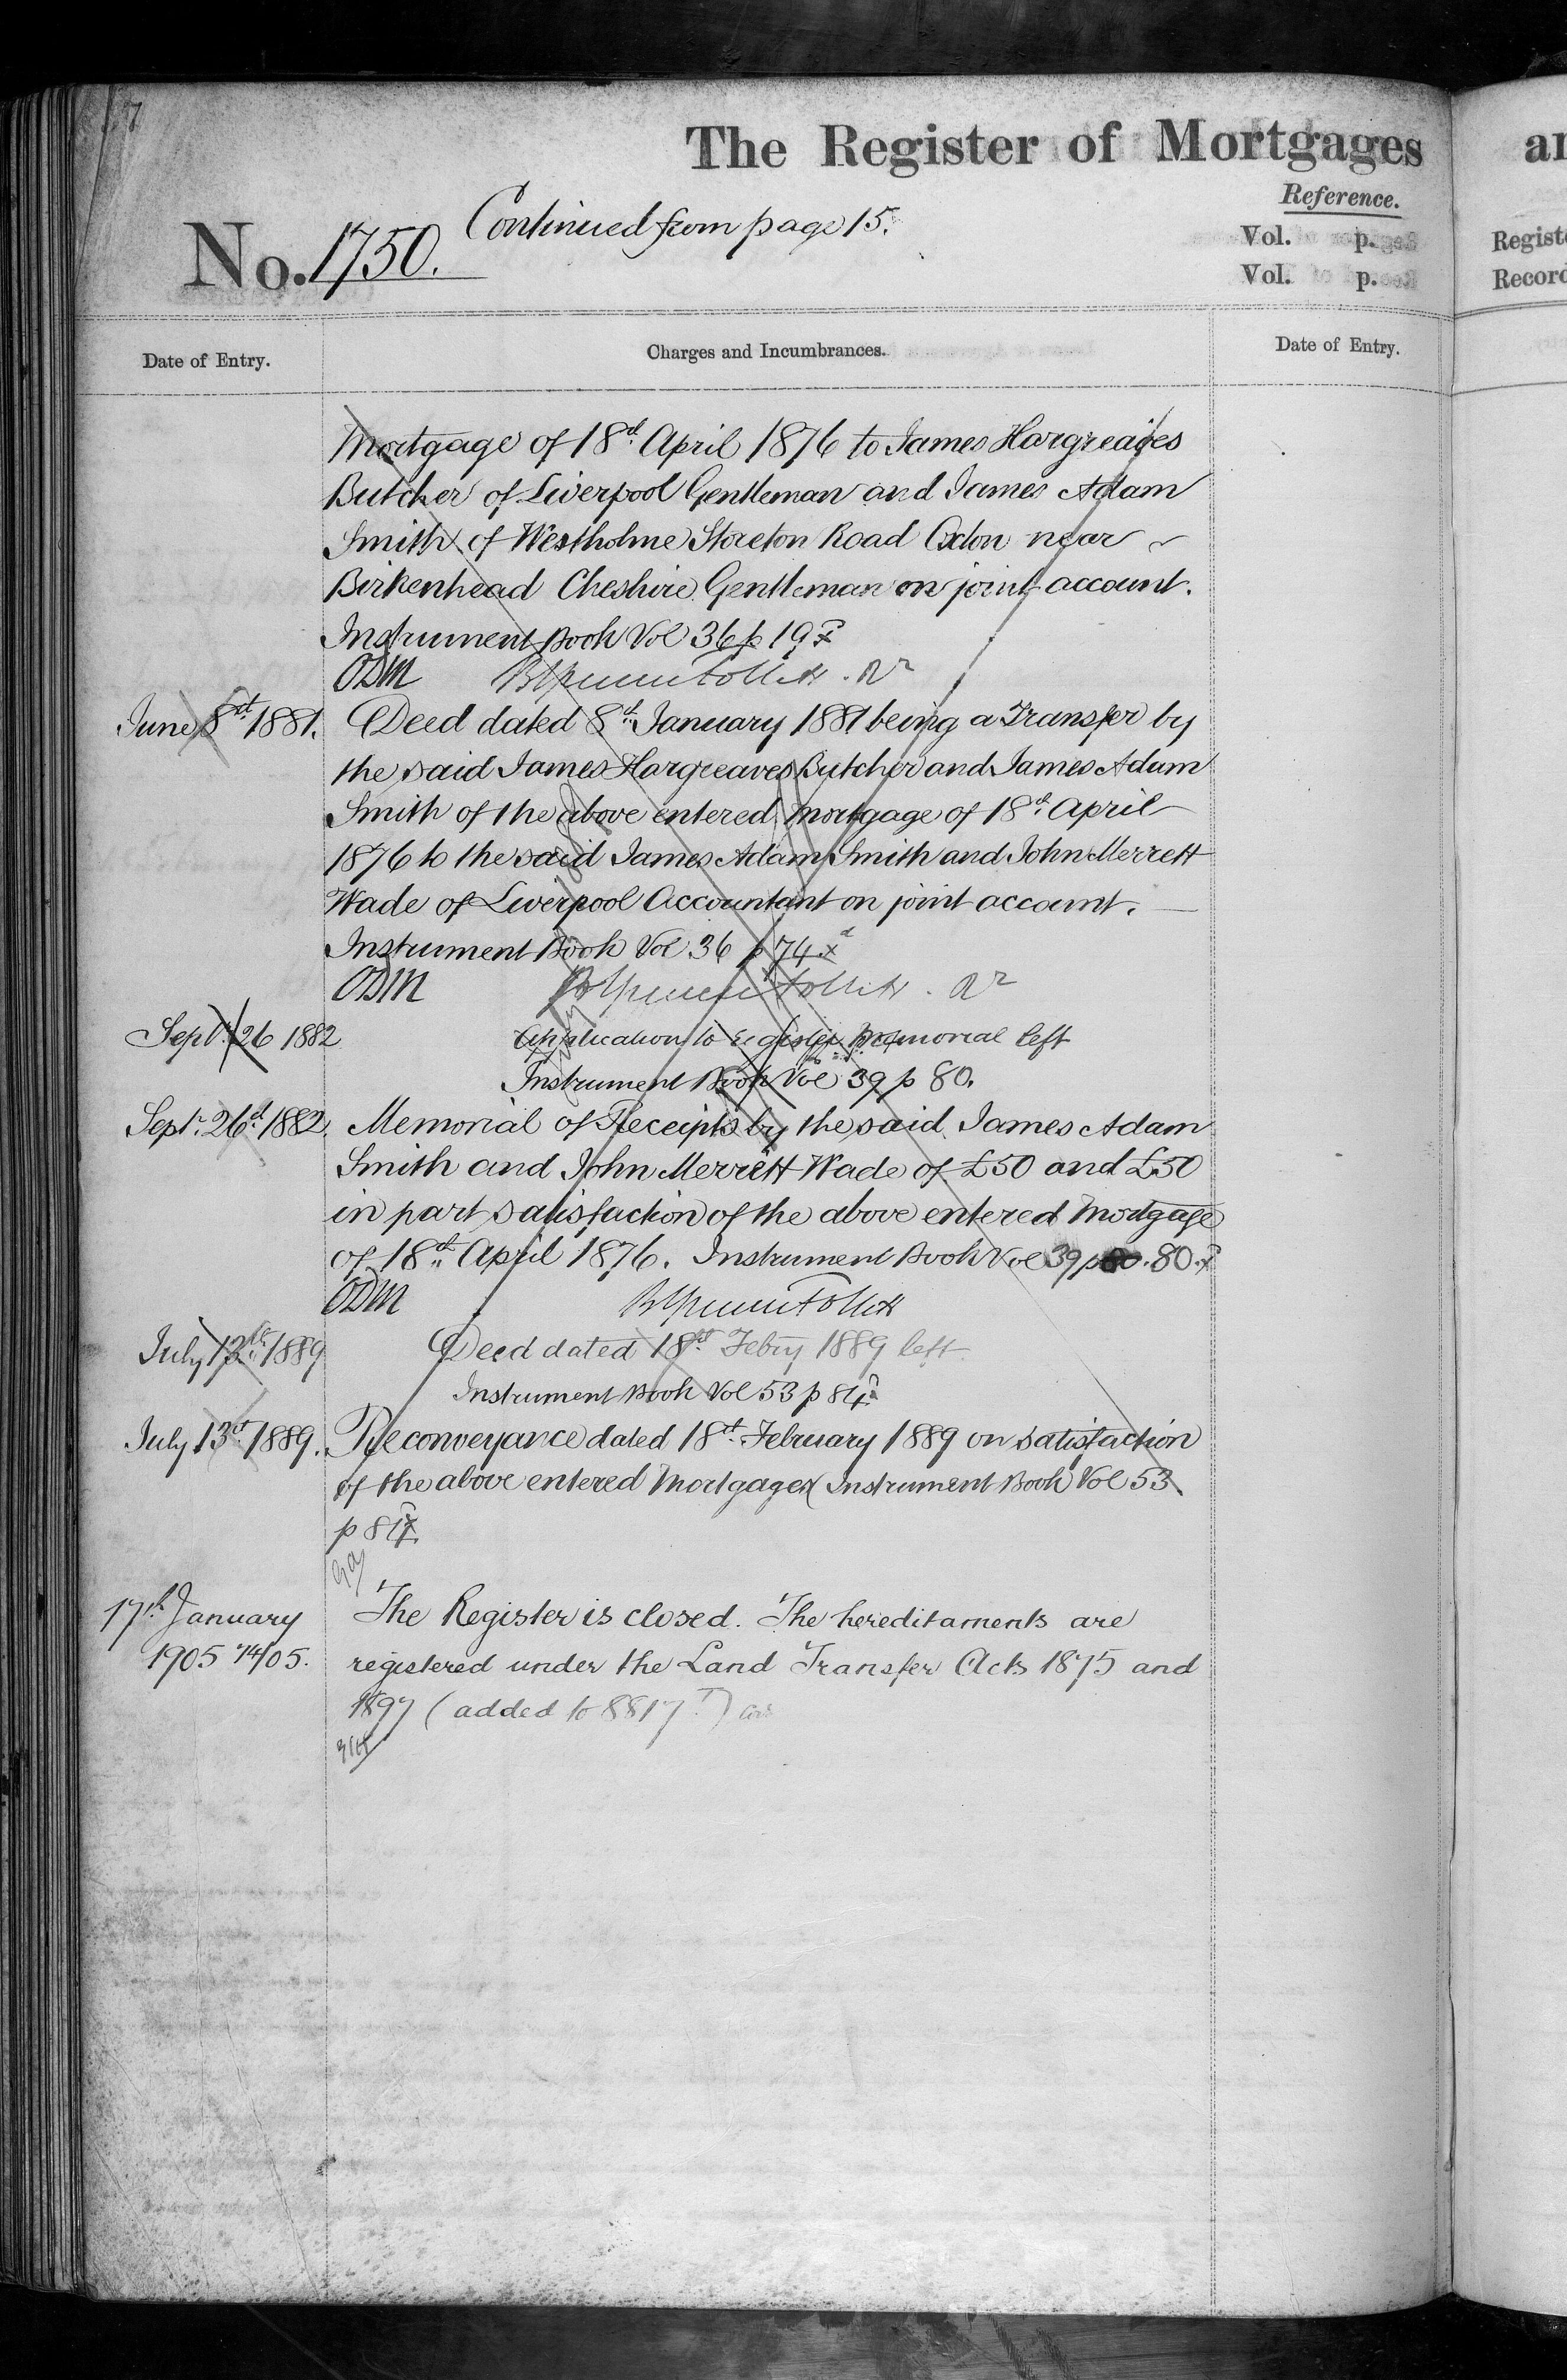 The Register of Mortgages
Reference.
No. 1750. Continued from page 15.
Vol. p.
Vol. p.
Date of Entry.
Charges and Incumbrances.
Date of Entry.
Mortgage of 18th April 1876 to James Hargreaves
Butcher of Liverpool Gentleman and James Adam
Smith of Westholme Storeton Road Oxton near
Birkenhead Cheshire Gentleman on joint account.
Instrument Book Vol 36 p 19
ODM
June 8th 1881. Deed dated 8th January 1881 being a Transfer by
the said James Hargreaves Butcher and James Adam
Smith of the above entered mortgage of 18th April
1876 to the said James Adam Smith and John Merrett
Wade of Liverpool Accountant on joint account.
Instrument Book Vol 36 p 74
ODM
Sept. 26 1882 Application to register memorial left
Instrument Book Vol 39 p 80.
Sept. 26th 1882. Memorial of Receipts by the said James Adam
Smith and John Merrett Wade of £50 and £50
in part satisfaction of the above entered Mortgage
of 18th April 1876. Instrument Book Vol 39 p 80.
ODM
July 12th 1889 Deed dated 18th Febry 1889 left
Instrument Book Vol 53 p 84
July 13th 1889. Reconveyance dated 18th February 1889 on satisfaction
of the above entered Mortgage Instrument Book Vol 53
p 84
17th January The Register is closed. The hereditaments are
1905 74/05. registered under the Land Transfer Acts 1875 and
1897 (added to 8817)
ar
Registe
Record